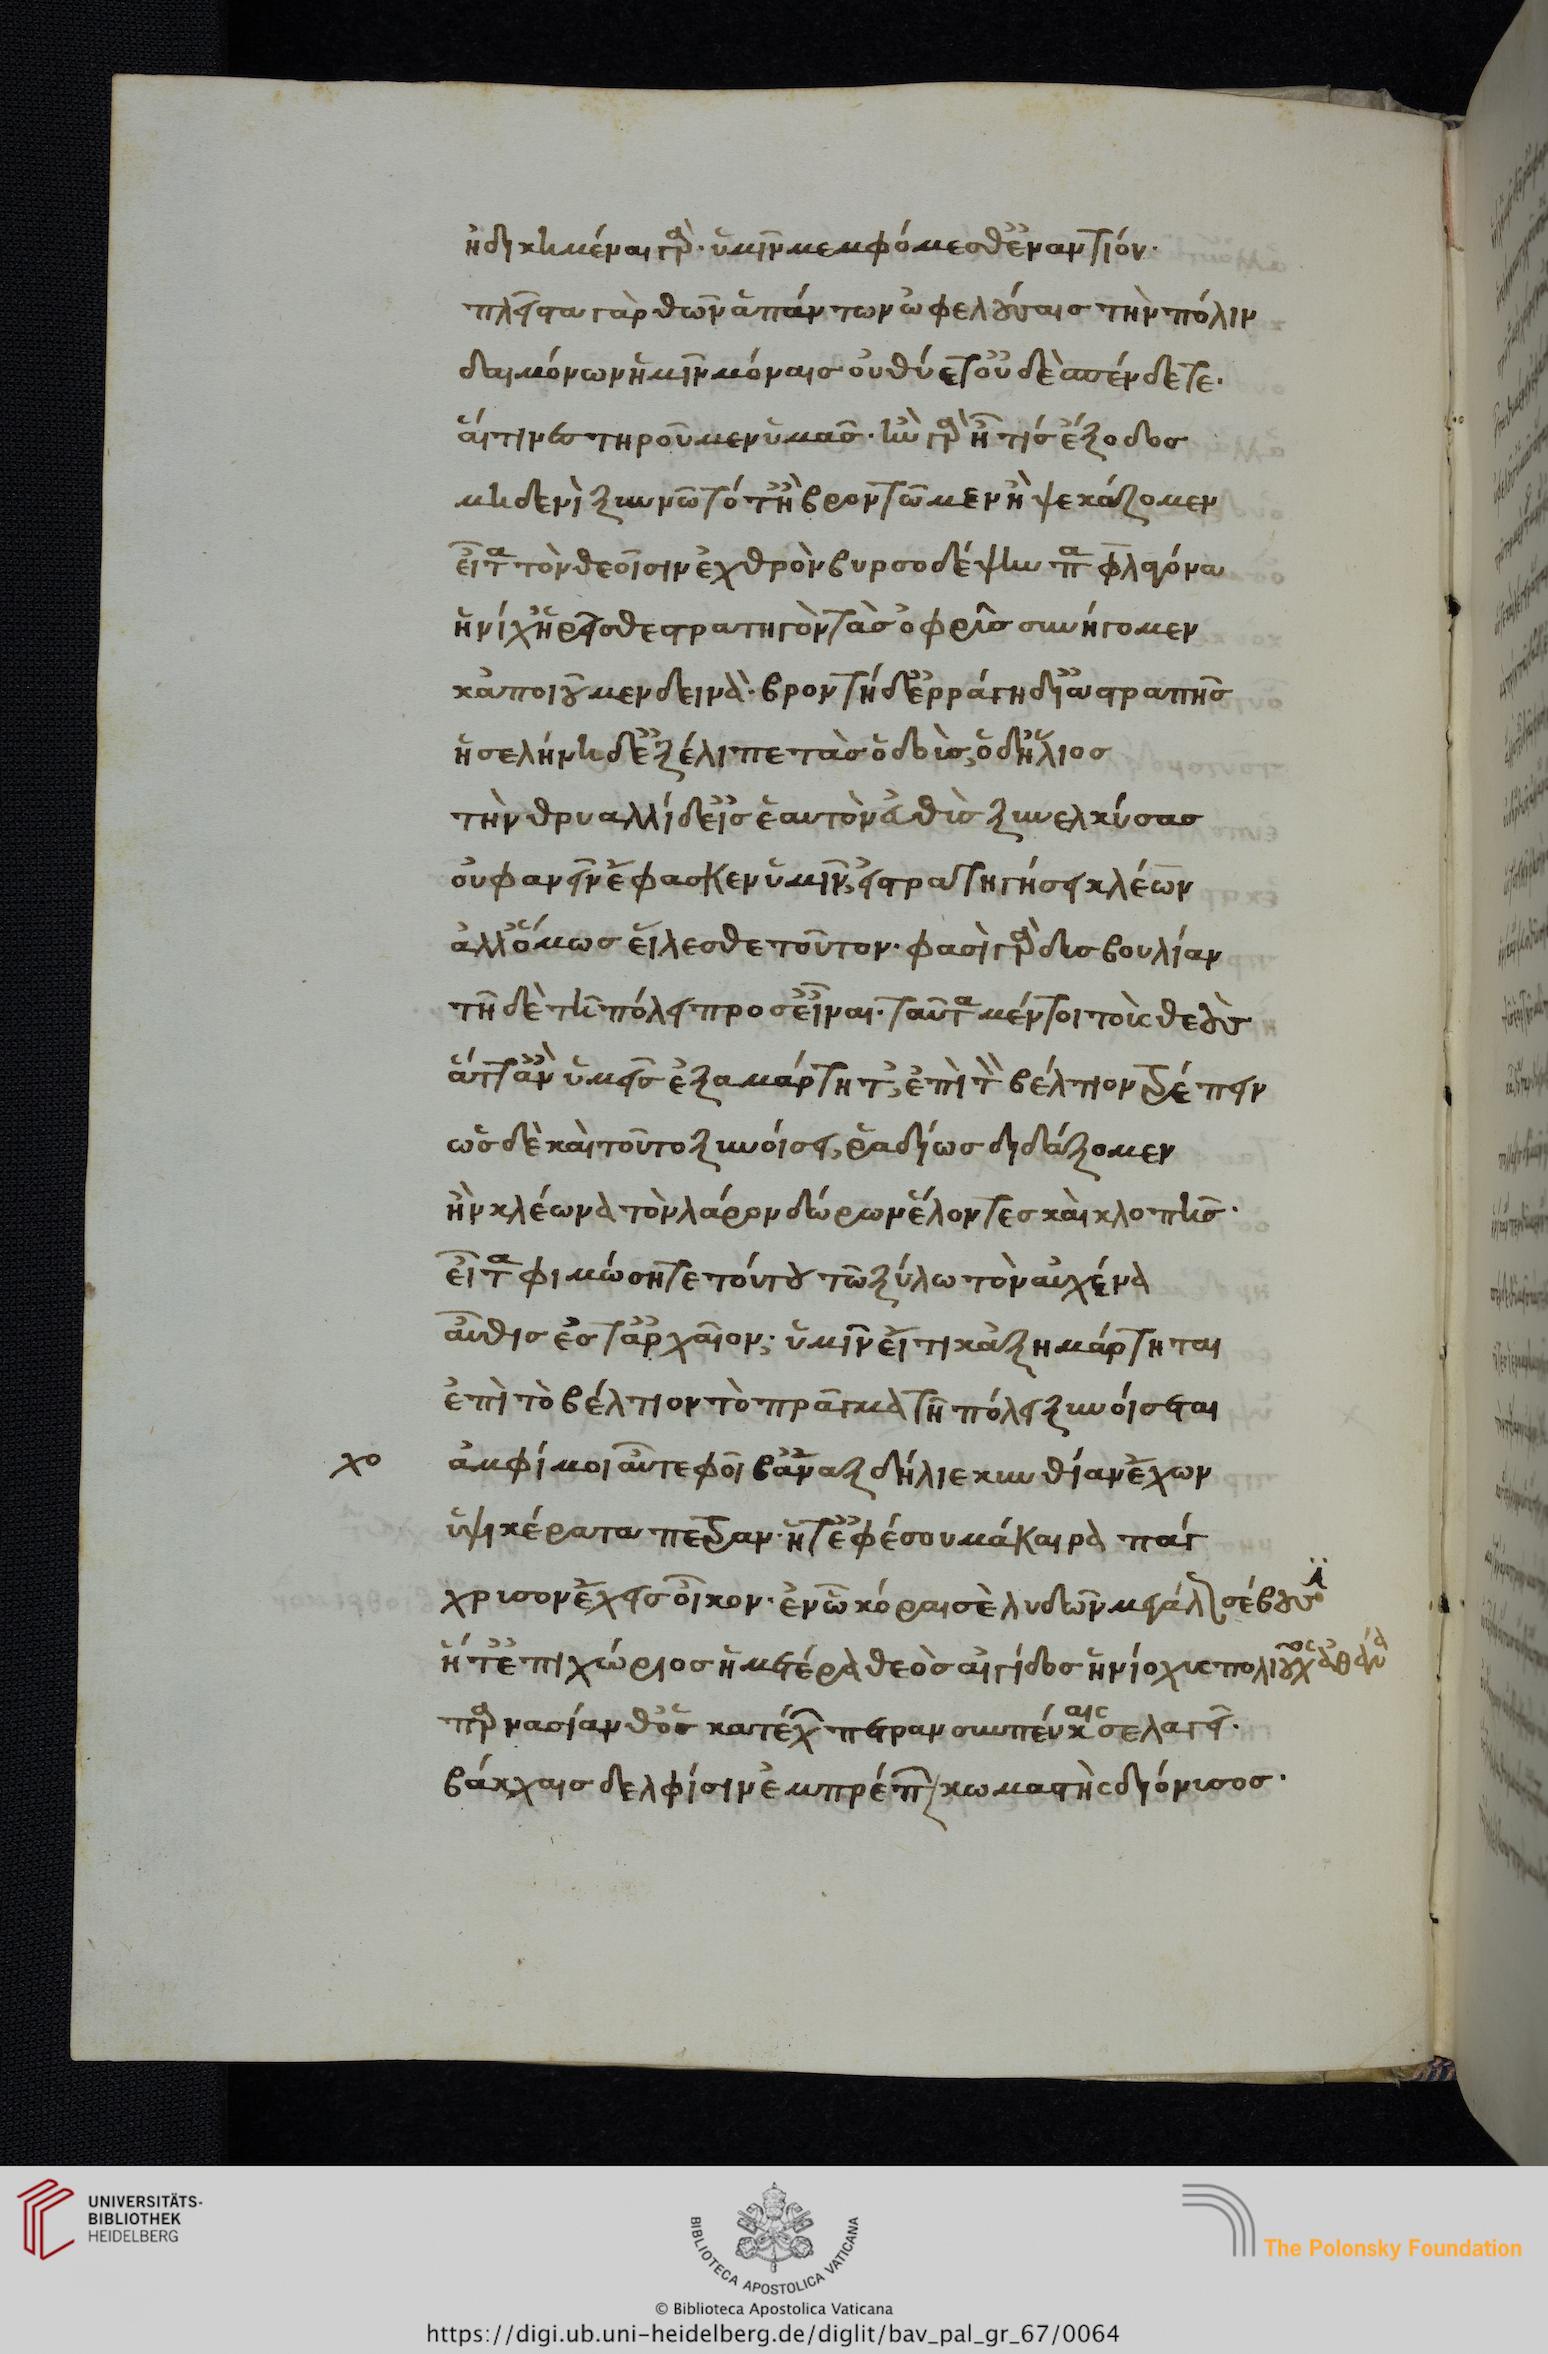 ἠδικημέναι γὰρ· ὑμῖν μεμφόμεσθ' ἐναντίον·
πλεῖστα γὰρ θεῶν ἁπάντων ὠφελούσαις τὴν πόλιν
δαιμόνων ἡμῖν μόναις οὐ θύετ' οὐδὲ σπένδετε·
αἵτινες τηροῦμεν ὑμᾶς· ἢν γὰρ ἦ τίς ἔξοδος
μηδενὶ ξυννῶ τότ' ἢ βροντῶμεν ἢ ψεκάζομεν
εἶτα τὸν θεοῖσιν ἐχθρὸν βυρσοδέψην παφλαγόνα
ἡνίχ' ἡρεῖσθε στρατηγὸν τὰς ὀφρῦς συνήγομεν
κἀποιοῦμεν δεινὰ· βροντὴ δ' ἐρράγη δι' ἀστραπῆς
ἡ σελήνη δ' ἐξέλιπε τὰς ὁδοὺς, ὁ δ' ἥλιος
τὴν θρυαλλίδ' εἰς ἑαυτὸν εὐθὺς ξυνελκύσας
οὐ φανεῖν ἔφασκεν ὑμῖν, εἰ στρατηγήσει κλέων
ἀλλ' ὅμως εἵλεσθε τοῦτον· φασὶ γὰρ δυσβουλίαν
τῇδε τῇ πόλει προσεῖναι· ταῦτα μέντοι τοὺς θεοὺς
ἅττ' ἂν ὑμεῖς ἐξαμάρτητ', ἐπὶ τὸ βέλτιον τρέπειν
ὡς δὲ καὶ τοῦτο ξυνοίσει, ῥαδίως διδάξομεν
ἢν κλέωνα τὸν λάρον δώρων ἑλόντες καὶ κλοπῆς·
εἶτα φιμώσητε τούτου τῷ ξύλω τὸν αὐχένα
αὖθις ἐς τἀρχαῖον; ὑμῖν εἴ τι κἀξημάρτηται
ἐπὶ τὸ βέλτιον τὸ πρᾶγμα τῇ πόλει ξυνοίσεται
χο ἀμφί μοι αὖτε φοῖβ' ἄναξ δήλιε κυνθίαν ἔχων
ὑψικέρατα πέτραν· ἥ τ' ἐφέσου μάκαιρα πάγ
χρισον ἔχεις οἶκον· ἐν ᾧ κόραι σὲ λυδῶν μεγάλ σέβουσϊ
ἥ τ' ἐπιχώριος ἡμετέρα θεὸς αἰγίδος ἡνίοχος πολιοῦχος ἀθάνα
παρνασίαν θ' ὃς κατέχων πέτραν συν πεύκαις σελαγεῖ·
βάκχαις δελφίσιν ἐμπρέπων κωμαστὴς διόνισος·
UNIVERSITÄTS-
BIBLIOTHEK
HEIDELBERG
BIBLIOTECA APOSTOLICA VATICANA
The Polonsky Foundation
© Biblioteca Apostolica Vaticana
https://digi.ub.uni-heidelberg.de/diglit/bav_pal_gr_67/0064